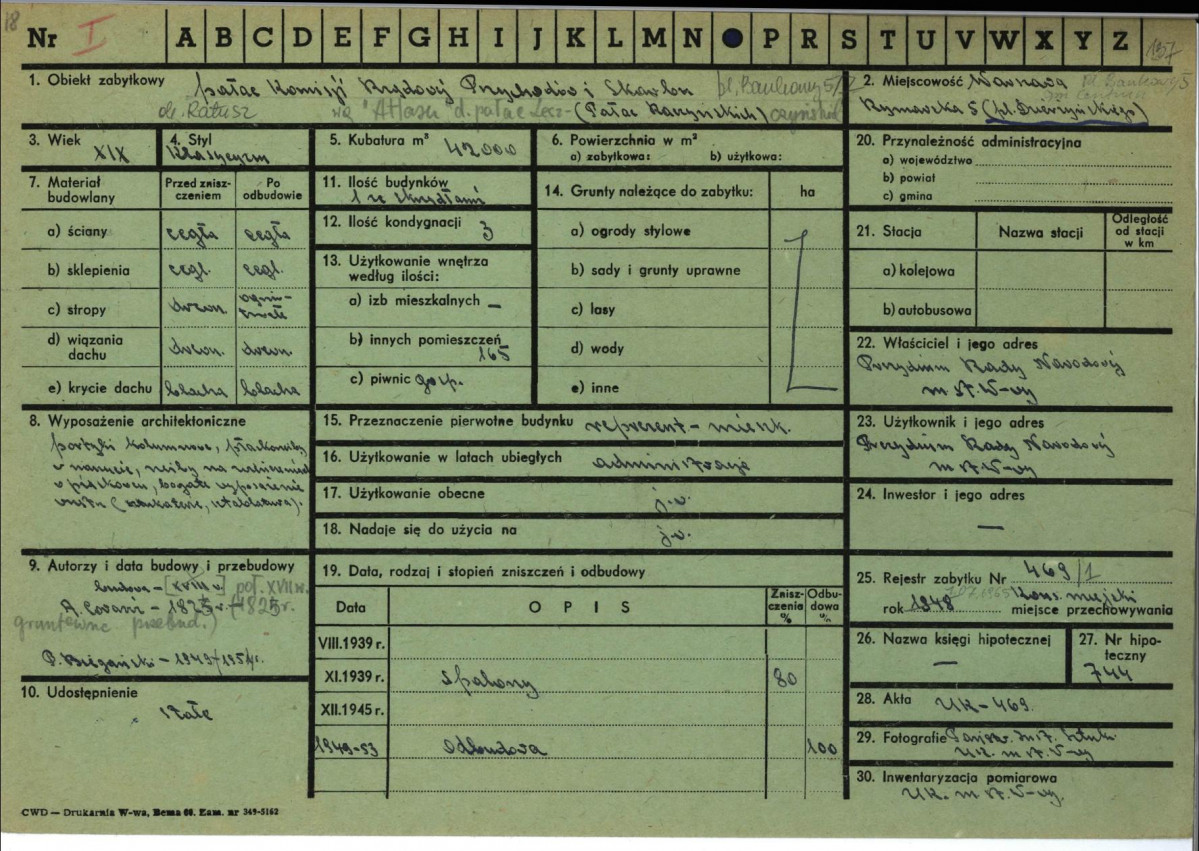 18
Nr I A B C D E F G H I J K L M N P R S T U V W X Y Z 137
1. Obiekt zabytkowy pałac Komisji Rządowej Przychodów i Skarbu pl. Bankowy 5/7
ob. Ratusz wg "Atlasu" d. pałac Lesz- (Pałac Raczyńskich) czyńskich
2. Miejscowość Warszawa pl. Bankowy 5
Rymarska 5 (pl. Dzierżyńskiego)
3. Wiek XIX
4. Styl klasycyzm
5. Kubatura m³ 42000
6. Powierzchnia w m²
a) zabytkowa: b) użytkowa:
7. Materiał budowlany
Przed zniszczeniem
Po odbudowie
a) ściany cegła cegła
b) sklepienia cegl. cegl.
c) stropy drewn. ognio-trwałe
d) wiązania dachu drewn. drewn.
e) krycie dachu blacha blacha
8. Wyposażenie architektoniczne
portyki kolumnowe, płaskorzeźby
9. Autorzy i data budowy i przebudowy
budowa – [XVIII w.] poł. XVII w.
A. Corazzi – 1825 r. (1825 r.
gruntowne przebud.)
P. Biegański – 1949/1954 r.
10. Udostępnienie
stałe
11. Ilość budynków
1 ze skrzydłami
12. Ilość kondygnacji 3
13. Użytkowanie wnętrza według ilości:
a) izb mieszkalnych –
b) innych pomieszczeń 165
c) piwnic gosp.
14. Grunty należące do zabytku: ha
a) ogrody stylowe
b) sady i grunty uprawne
c) lasy
d) wody
e) inne
15. Przeznaczenie pierwotne budynku reprezent – mieszk.
16. Użytkowanie w latach ubiegłych administracja
17. Użytkowanie obecne j.w.
18. Nadaje się do użycia na j.w.
19. Data, rodzaj i stopień zniszczeń i odbudowy
Data OPIS Zniszczenia % Odbudowa %
VIII.1939 r.
XI.1939 r. spalony 80
XII.1945 r.
1949-53 odbudowa 100
20. Przynależność administracyjna
a) województwo
b) powiat
c) gmina
21. Stacja Nazwa stacji Odległość od stacji w km
a) kolejowa
b) autobusowa
22. Właściciel i jego adres
Prezydium Rady Narodowej
m st. W-wy
23. Użytkownik i jego adres
Prezydium Rady Narodowej
m st. W-wy
24. Inwestor i jego adres
–
25. Rejestr zabytku Nr 469/1
rok 1948 1.07.1965 Kons. miejski miejsce przechowywania
26. Nazwa księgi hipotecznej
–
27. Nr hipoteczny
744
28. Akta UK-469
29. Fotografie Państw. Inst. Sztuki
U.K. m st. W-wy
30. Inwentaryzacja pomiarowa
UK. m st. W-wy.
CWD — Drukarnia W-wa, Bema 60. Zam. nr 349-5162